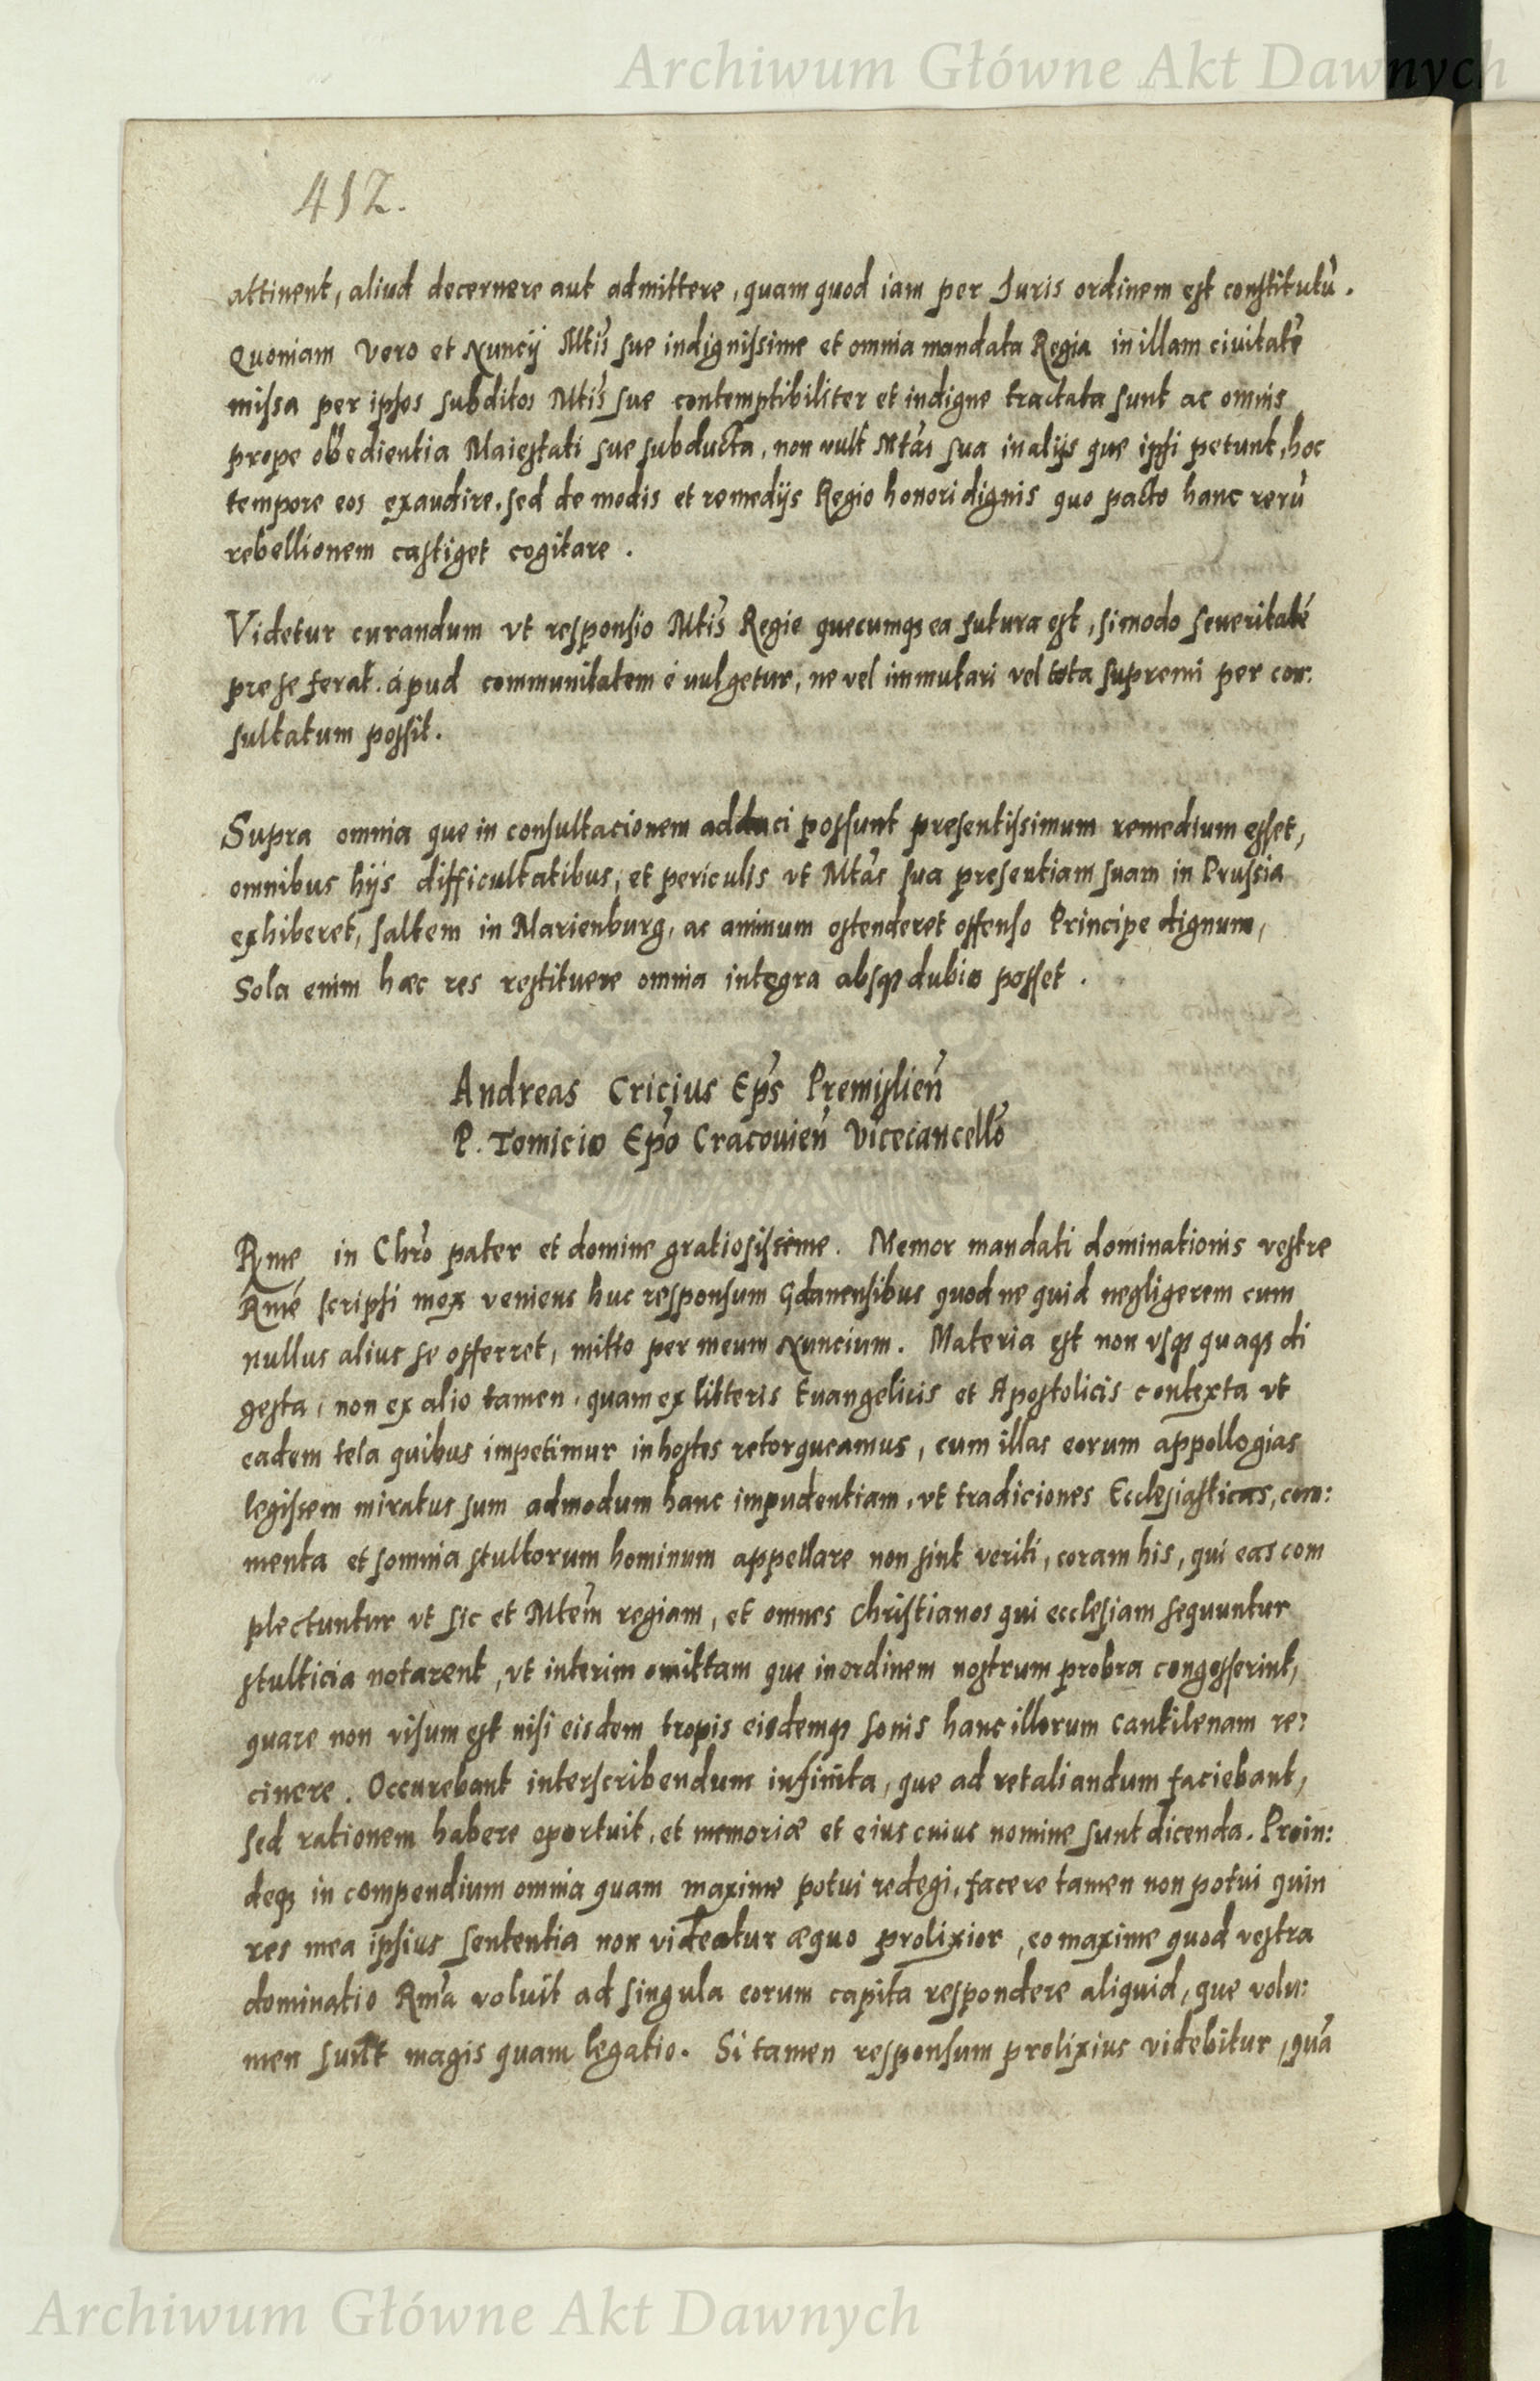 Archiwum Główne Akt Dawnych
412.
attinent, aliud decernere aut admittere, quam quod iam per Iuris ordinem est constitutũ.
Quoniam vero et Nuncij Mtis sue indignissime et omnia mandata Regia in illam ciuitatẽ
missa per ipsos subditos Mtis sue contemptibiliter et indigne tractata sunt ac omnis
prope obedientia Maiestati sue subducta, non vult Mtas sua in alijs que ipsi petunt, hoc
tempore eos exaudire, sed de modis et remedijs Regio honori dignis quo pacto hanc rerũ
rebellionem castiget cogitare.
Videtur curandum vt responsio Mtis Regie quecumqȝ ea futura est, si modo seueritatẽ
pre se ferat. apud communitatem euulgetur, ne vel immutari vel tota supremi per con:
sultatum possit.
Supra omnia que in consultacionem adduci possunt presentissimum remedium esset,
omnibus hijs difficultatibus, et periculis vt Mtas sua presentiam suam in Prussia
exhiberet, saltem in Marienburg, ac animum ostenderet offenso Principe dignum,
Sola enim hæc res restituere omnia integra absqȝ dubio posset.
Andreas Cricius Eps Premislien
P. Tomicio Epo Cracouien Vicecancello
Rme in Chro pater et domine gratiosissime. Memor mandati dominationis vestre
Rme scripsi mox veniens huc responsum Gdanensibus quod ne quid negligerem cum
nullus alius se offerret, mitto per meum Nuncium. Materia est non vsqȝ quaqȝ di
gesta, non ex alio tamen, quam ex litteris Euangelicis et Apostolicis contexta vt
eadem tela quibus impetimur in hostes retorqueamus, cum illas eorum appollogias
legissem miratus sum admodum hanc impudentiam, vt tradiciones Ecclesiasticas, com:
menta et somnia stultorum hominum appellare non sint veriti, coram his, qui eas com
plectuntur vt sic et Mtem regiam, et omnes Christianos qui ecclesiam sequuntur
stulticia notarent, vt interim omittam que in ordinem nostrum probra congesserint,
quare non visum est nisi eisdem tropis eisdemqȝ sonis hanc illorum cantilenam re:
cinere. Occurebant interscribendum infinita, que ad retaliandum faciebant,
sed rationem habere oportuit, et memoriæ et eius cuius nomine sunt dicenda. Proin:
deqȝ in compendium omnia quam maxime potui redegi, facere tamen non potui quin
res mea ipsius sententia non videatur æquo prolixior, eo maxime quod vestra
dominatio Rma voluit ad singula eorum capita respondere aliquid, que volu:
men sunt magis quam legatio. Si tamen responsum prolixius videbitur, quã
Archiwum Główne Akt Dawnych